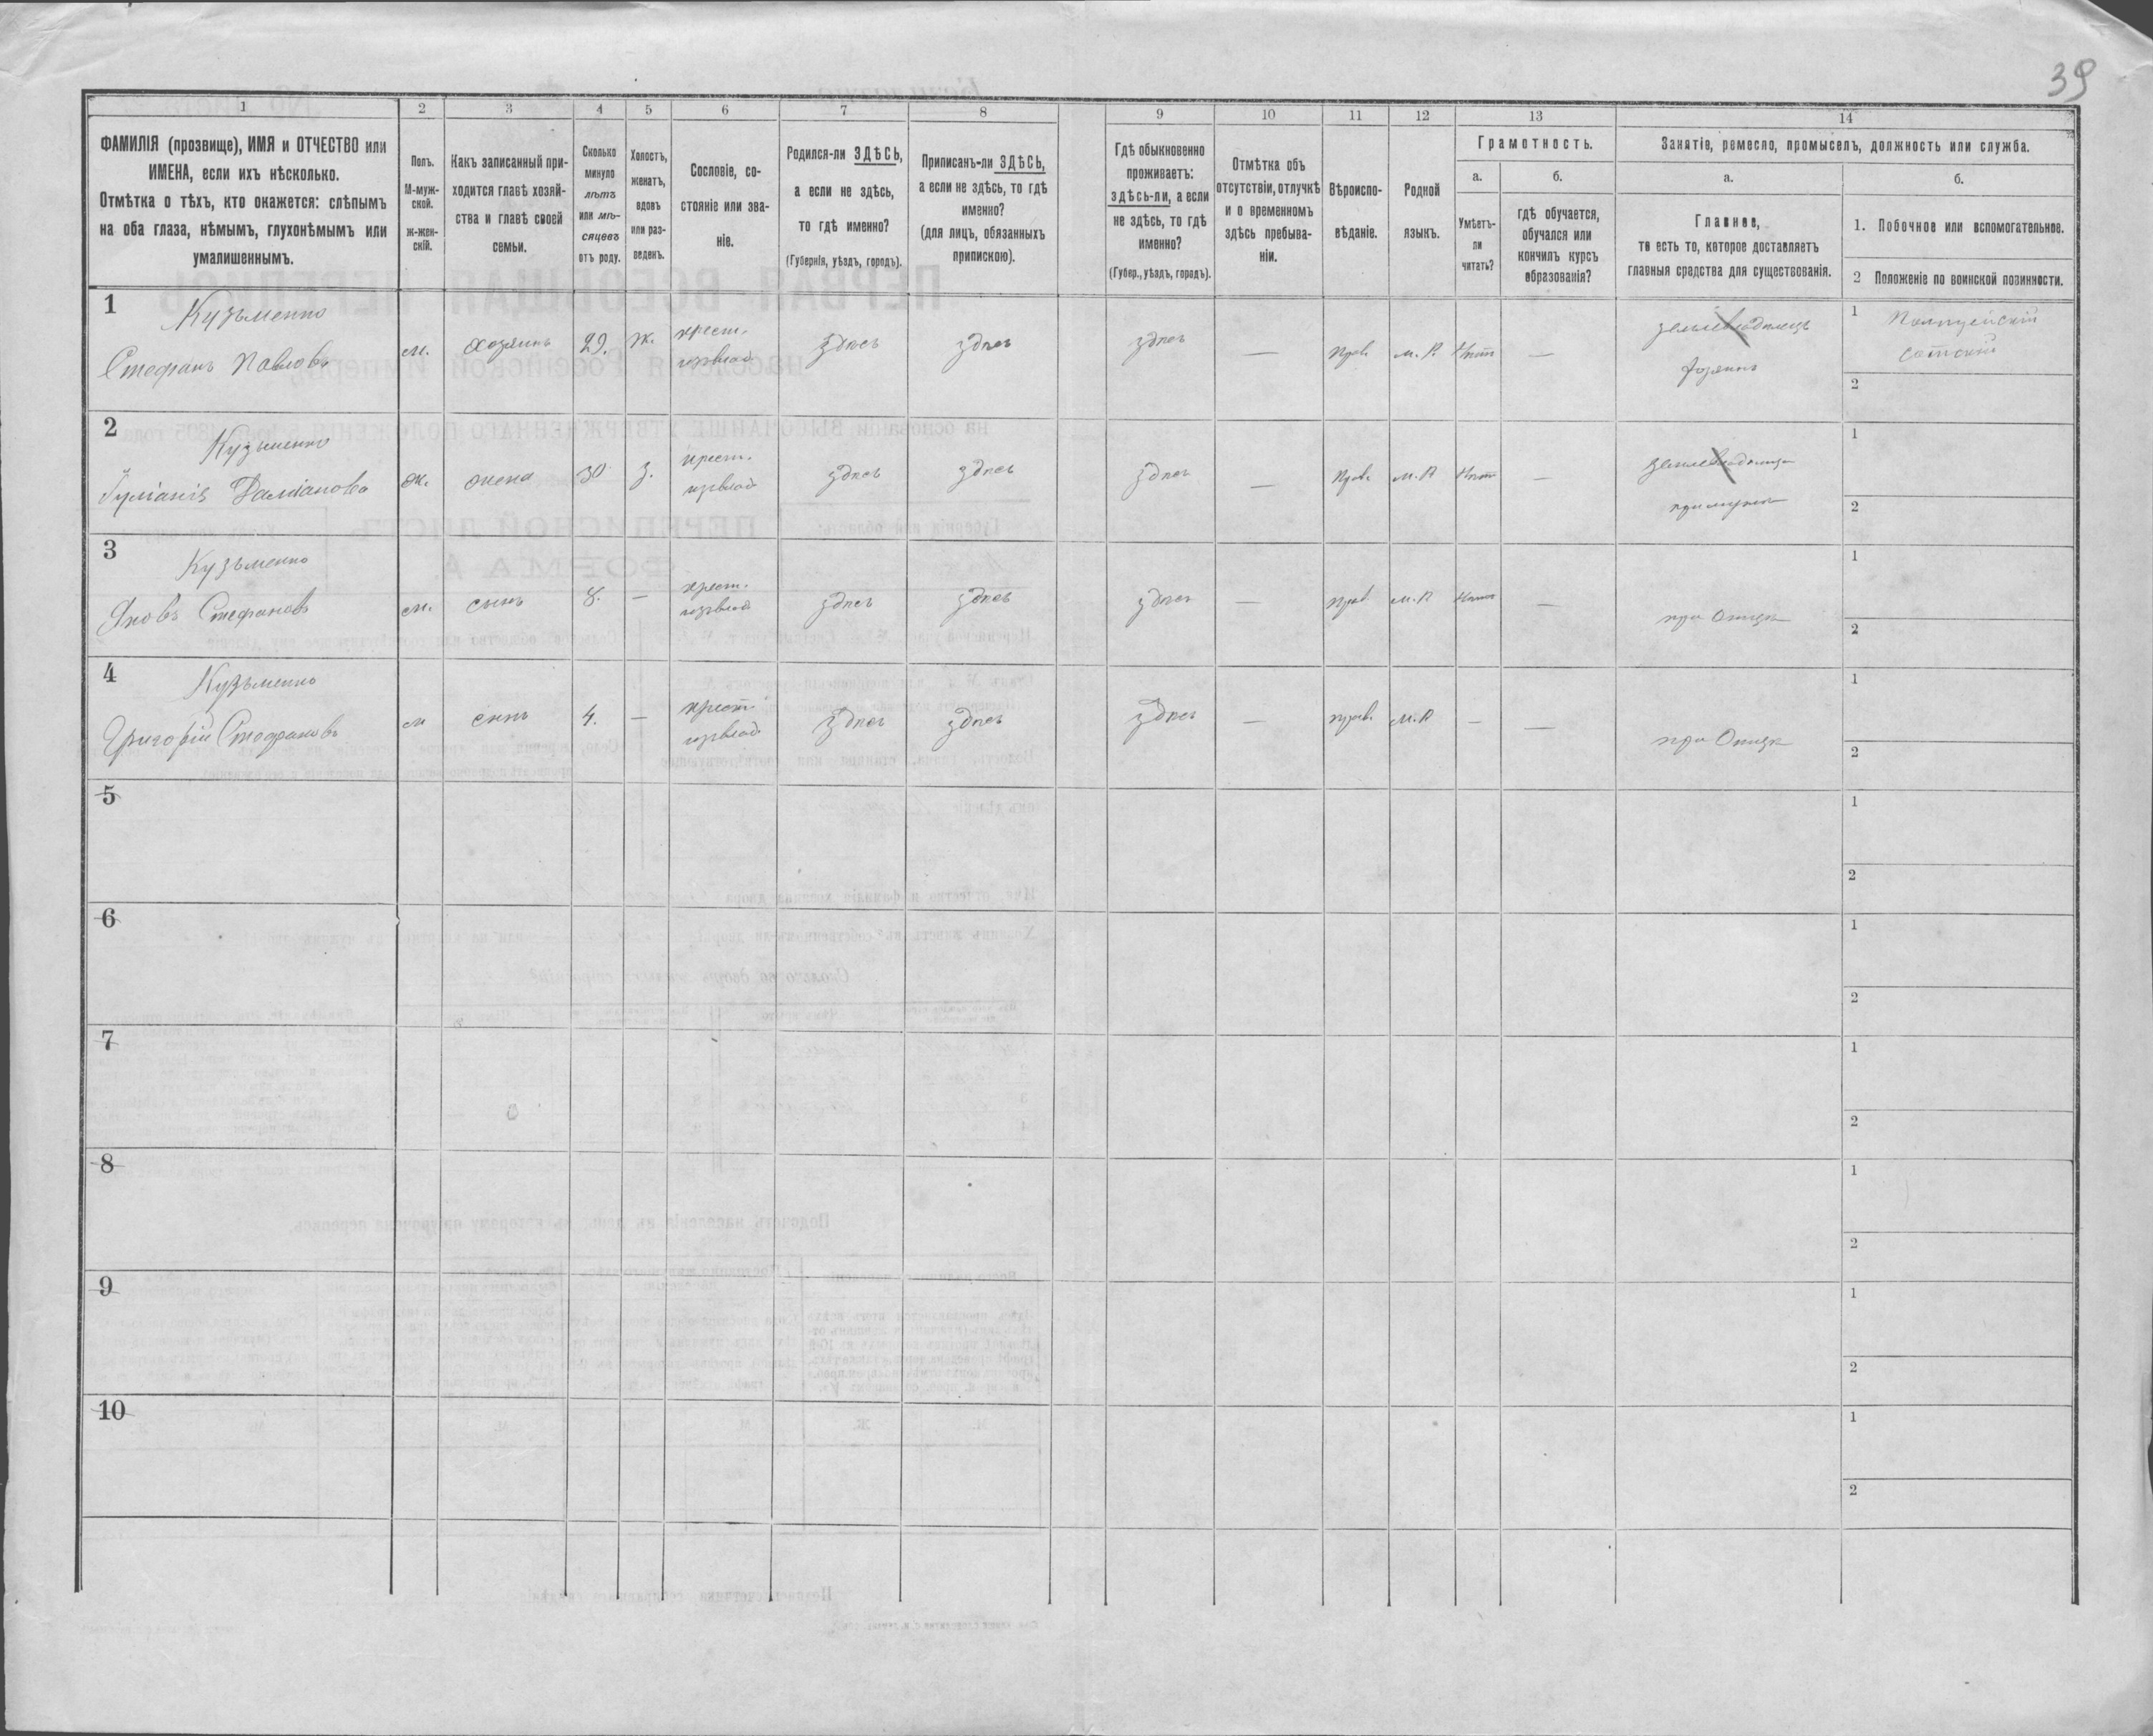 39
1
2
3
4
5
6
7
8
9
10
11
12
13
14
ФАМИЛІЯ (прозвище), ИМЯ и ОТЧЕСТВО или
ИМЕНА, если ихъ нѣсколько.
Отмѣтка о тѣхъ, кто окажется: слѣпымъ
на оба глаза, нѣмымъ, глухонѣмымъ или
умалишеннымъ.
Полъ.
М-муж-
ской.
ж-жен-
скій.
Какъ записанный при-
ходится главѣ хозяй-
ства и главѣ своей
семьи.
Сколько
минуло
лѣтъ
или мѣ-
сяцевъ
отъ роду.
Холостъ,
женатъ,
вдовъ
или раз-
веденъ.
Сословіе, со-
стояніе или зва-
ніе.
Родился-ли ЗДѢСЬ,
а если не здѣсь,
то гдѣ именно?
(Губернія, уѣздъ, городъ).
Приписанъ-ли ЗДѢСЬ,
а если не здѣсь, то гдѣ
именно?
(для лицъ, обязанныхъ
припискою).
Гдѣ обыкновенно
проживаетъ:
здѣсь-ли, а если
не здѣсь, то гдѣ
именно?
(Губер., уѣздъ, городъ).
Отмѣтка объ
отсутствіи, отлучкѣ
и о временномъ
здѣсь пребыва-
ніи.
Вѣроиспо-
вѣданіе.
Родной
языкъ.
Грамотность.
а.
Умѣетъ-
ли
читать?
б.
гдѣ обучается,
обучался или
кончилъ курсъ
образованія?
Занятіе, ремесло, промыселъ, должность или служба.
а.
Главное,
то есть то, которое доставляетъ
главныя средства для существованія.
б.
1. Побочное или вспомогательное.
2 Положеніе по воинской повинности.
1
Кузьменко
Стефанъ Павловъ
м.
хозяинъ
29.
ж.
крест.
здѣсь
здѣсь
здѣсь
—
прав.
м. Р.
нѣтъ
—
хозяинъ
1 Полицейскій
сотскій
2
2
Кузьменко
Іуліанія Даміанова
ж.
жена
30
з.
крест.
здѣсь
здѣсь
здѣсь
—
прав.
м. Р
нѣтъ
—
при мужѣ
1
2
3
Кузьменко
Яковъ Стефановъ
м.
сынъ
8.
—
крест.
здѣсь
здѣсь
здѣсь
—
прав.
м. Р
нѣтъ
—
при Отцѣ
1
2
4
Кузьменко
Григорій Стефановъ
м
сынъ
4.
—
крест.
здѣсь
здѣсь
здѣсь
—
прав.
м. Р
—
—
при Отцѣ
1
2
5
1
2
6
1
2
7
1
2
8
1
2
9
1
2
10
1
2